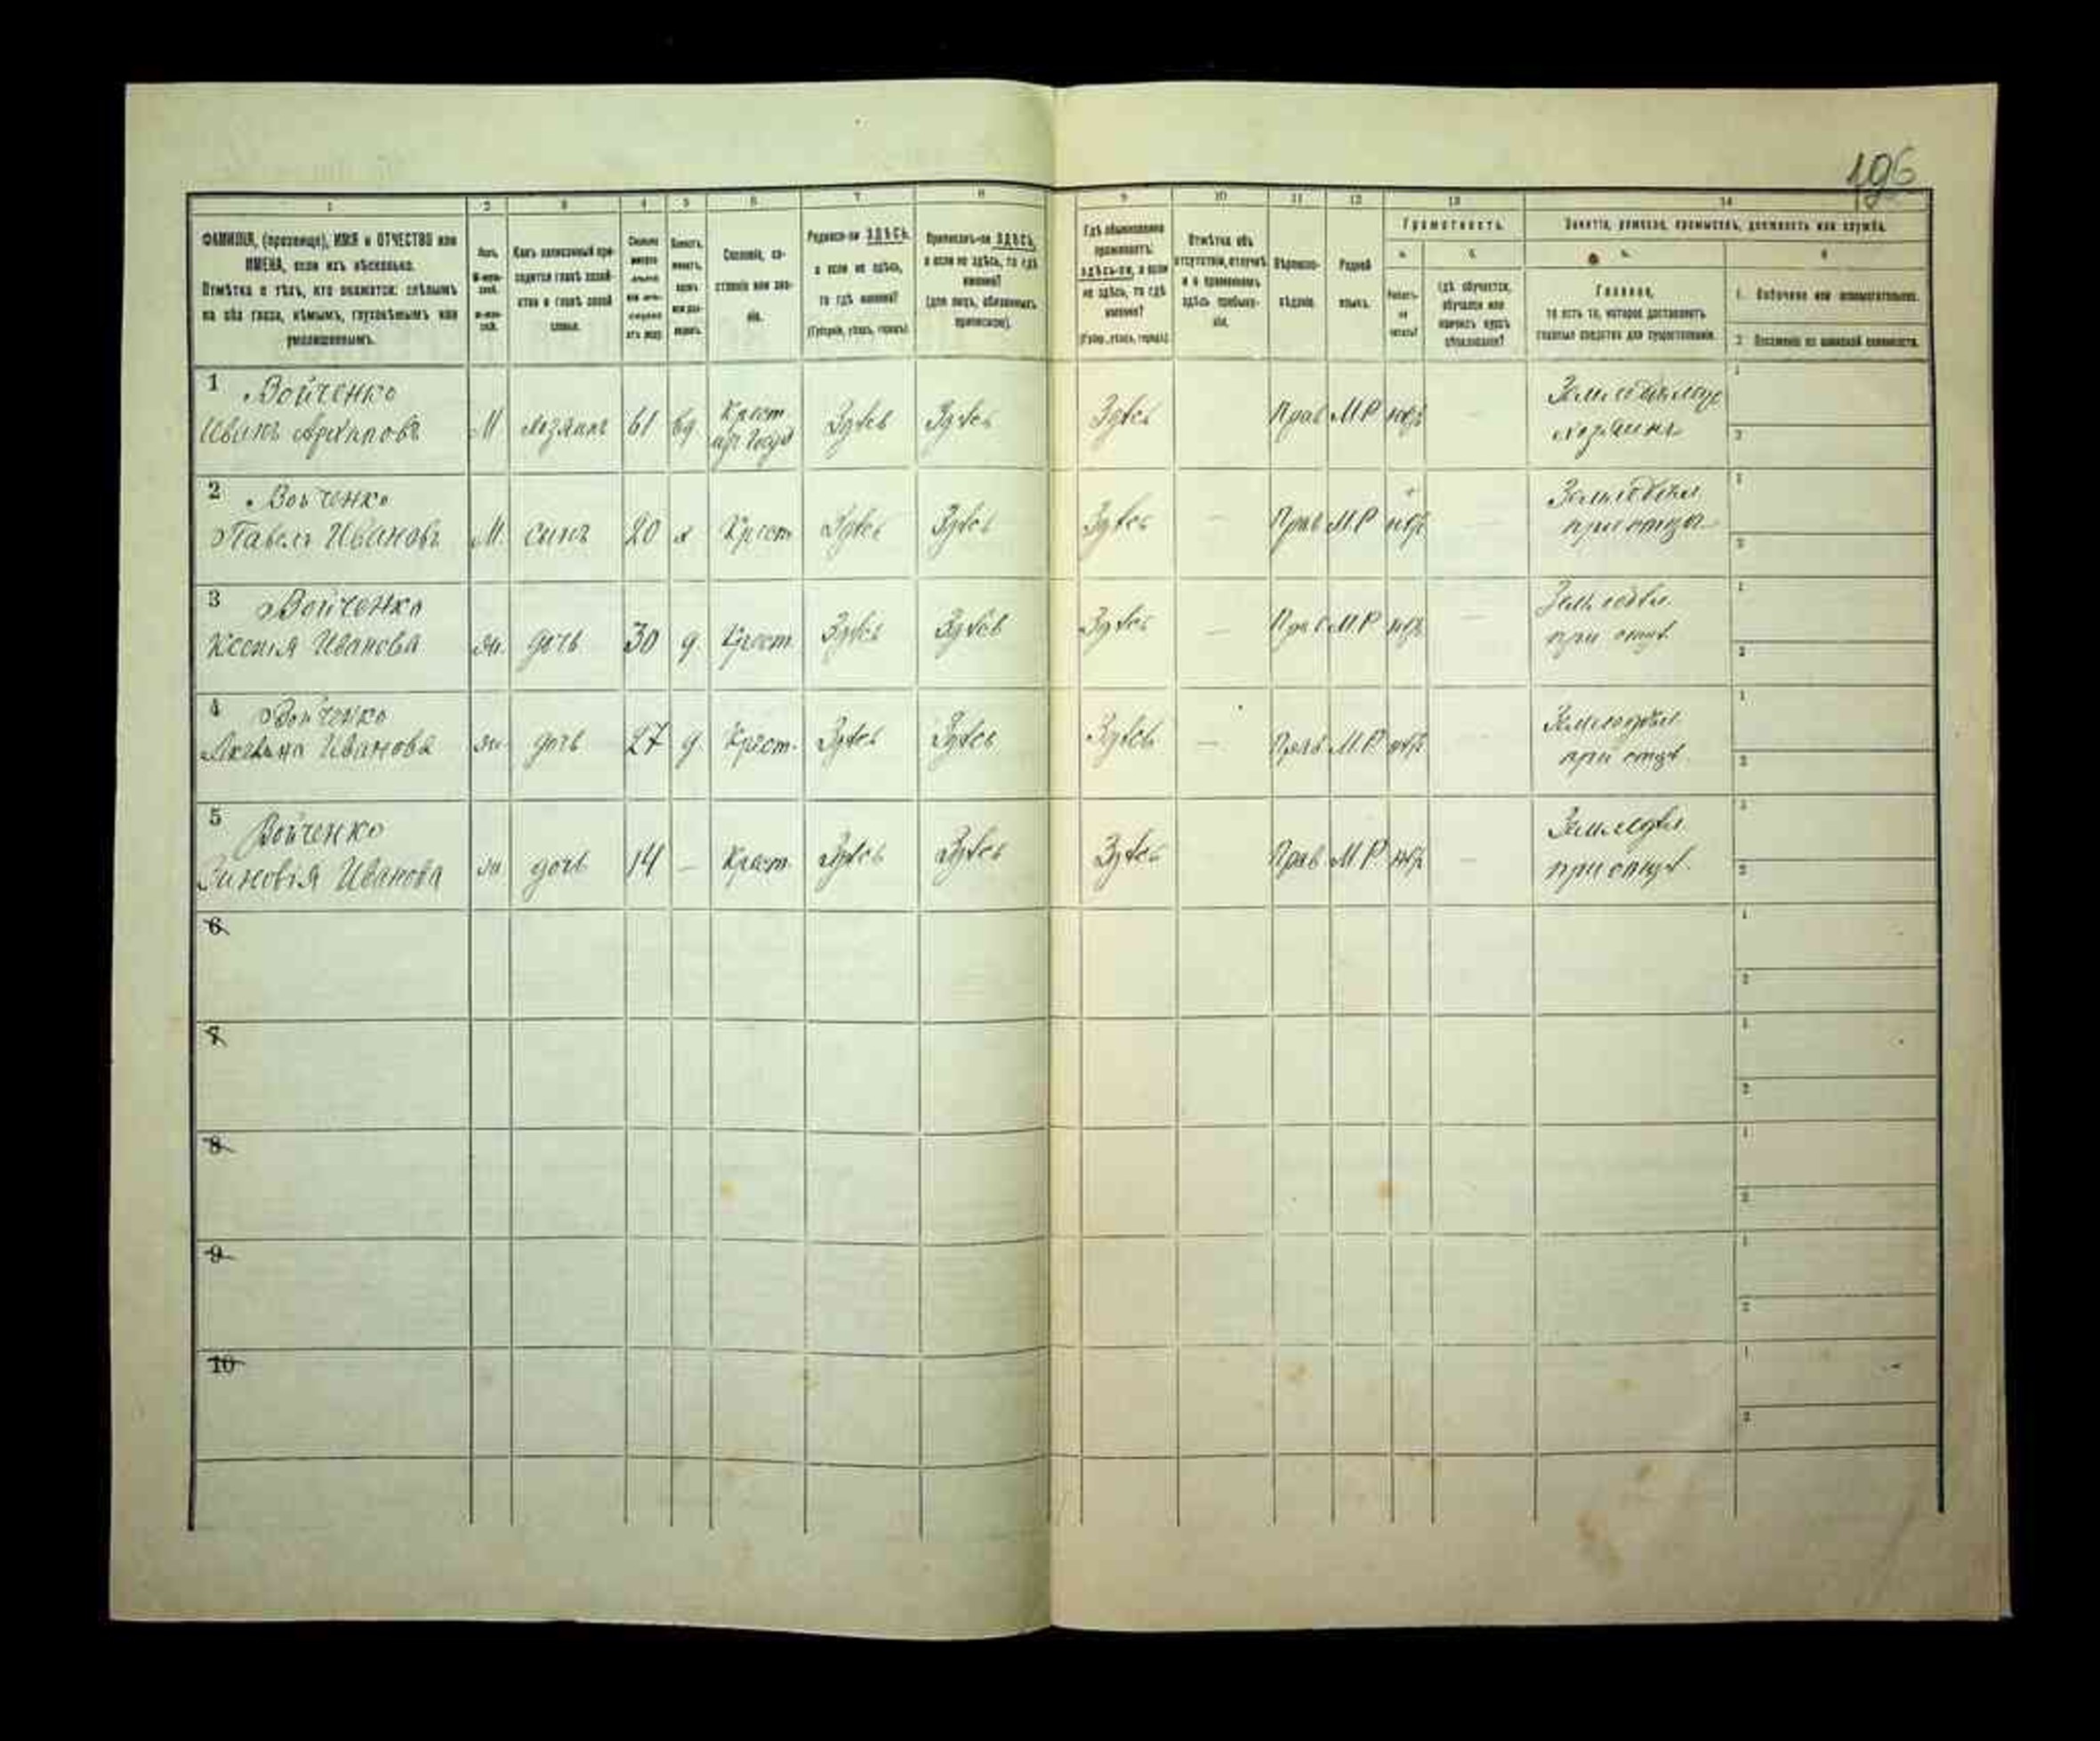 196
1 2 3 4 5 6 7 8 9 10 11 12 13 14
ФАМИЛІЯ, (прозвище), ИМЯ и ОТЧЕСТВО или
ИМЕНА, если ихъ нѣсколько.
Отмѣтка о тѣхъ, кто окажется: слѣпымъ
на оба глаза, нѣмымъ, глухонѣмымъ или
умалишеннымъ.
Полъ.
Какъ записанный при-
ходится главѣ хозяй-
ства и главѣ своей
семьи.
Сословіе, со-
стояніе или зва-
ніе.
Родился-ли ЗДѢСЬ,
а если не здѣсь,
то гдѣ именно?
(Губернія, уѣздъ, городъ)
Приписанъ-ли ЗДѢСЬ,
а если не здѣсь, то гдѣ
именно?
(для лицъ, обязанныхъ
припискою).
Гдѣ обыкновенно
проживаетъ:
здѣсь-ли, а если
не здѣсь, то гдѣ
именно?
(Губер., уѣздъ, городъ)
Отмѣтка объ
отсутствіи, отлучкѣ
и о временномъ
здѣсь пребыва-
ніи.
Вѣроиспо-
вѣданіе.
Родной
языкъ.
Грамотность.
а. б.
Умѣетъ-
ли
читать?
гдѣ обучается,
обучался или
кончилъ курсъ
образованія?
Занятіе, ремесло, промыселъ, должность или служба.
Главное,
то есть то, которое доставляетъ
главныя средства для существованія.
1. Побочное или вспомогательное.
2. Положеніе по воинской повинности.
1 Войченко
Иванъ Архиповъ М хозяинъ 61 вд Крест. изъ госуд Здѣсь Здѣсь Здѣсь Прав М.Р негр
хозяинъ
2 Войченко
Павелъ Ивановъ М. сынъ 20 х Крест Здѣсь Здѣсь Здѣсь — Прав М.Р негр — Земледѣл
при отцѣ
3 Войченко
Ксенія Иванова ж. дочь 30 д. Крест. Здѣсь Здѣсь Здѣсь — Прав М.Р негр — Земледѣл.
при отцѣ.
4 Войченко
Иванова ж. дочь 27 д. Крест. Здѣсь Здѣсь Здѣсь — Прав М.Р. негр Земледѣл.
при отцѣ.
5 Войченко
Зиновія Иванова ж дочь 14 — Крест. Здѣсь Здѣсь Здѣсь Прав М.Р. негр — Земледѣл.
при отцѣ.
6
7
8
9
10